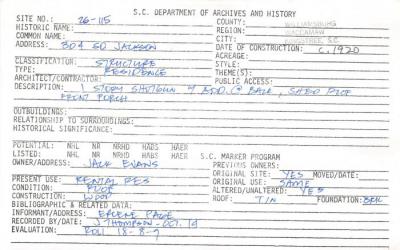 S.C. DEPARTMENT OF ARCHIVES AND HISTORY
SITE NO.: 26-115 COUNTY: WILLIAMSBURG
HISTORIC NAME: REGION: WACCAMAW
COMMON NAME: CITY: KINGSTREE, S.C.
ADDRESS: 304 SO JACKSON DATE OF CONSTRUCTION: C. 1920
ACREAGE:
CLASSIFICATION: STRUCTURE STYLE:
TYPE: RESIDENCE THEME(S):
ARCHITECT/CONTRACTOR: PUBLIC ACCESS:
DESCRIPTION: 1 STORY SHOTGUN ADD. @ BACK, SHED
FRONT PORCH
OUTBUILDINGS:
RELATIONSHIP TO SURROUNDINGS:
HISTORICAL SIGNIFICANCE:
POTENTIAL: NHL NR NRHD HABS HAER
LISTED: NHL NR NRHD HABS HAER S.C. MARKER PROGRAM
OWNER/ADDRESS: JACK EVANS PREVIOUS OWNERS:
ORIGINAL SITE: YES MOVED/DATE:
PRESENT USE: RENTAL RES ORIGINAL USE: SAME
CONDITION: POOR ALTERED/UNALTERED: YES
CONSTRUCTION: WOOD ROOF: TIN FOUNDATION: BRK
BIBLIOGRAPHIC & RELATED DATA:
INFORMANT/ADDRESS:
RECORDED BY/DATE: J THOMPSON - OCT.
EVALUATION: ROLL 18-8-9